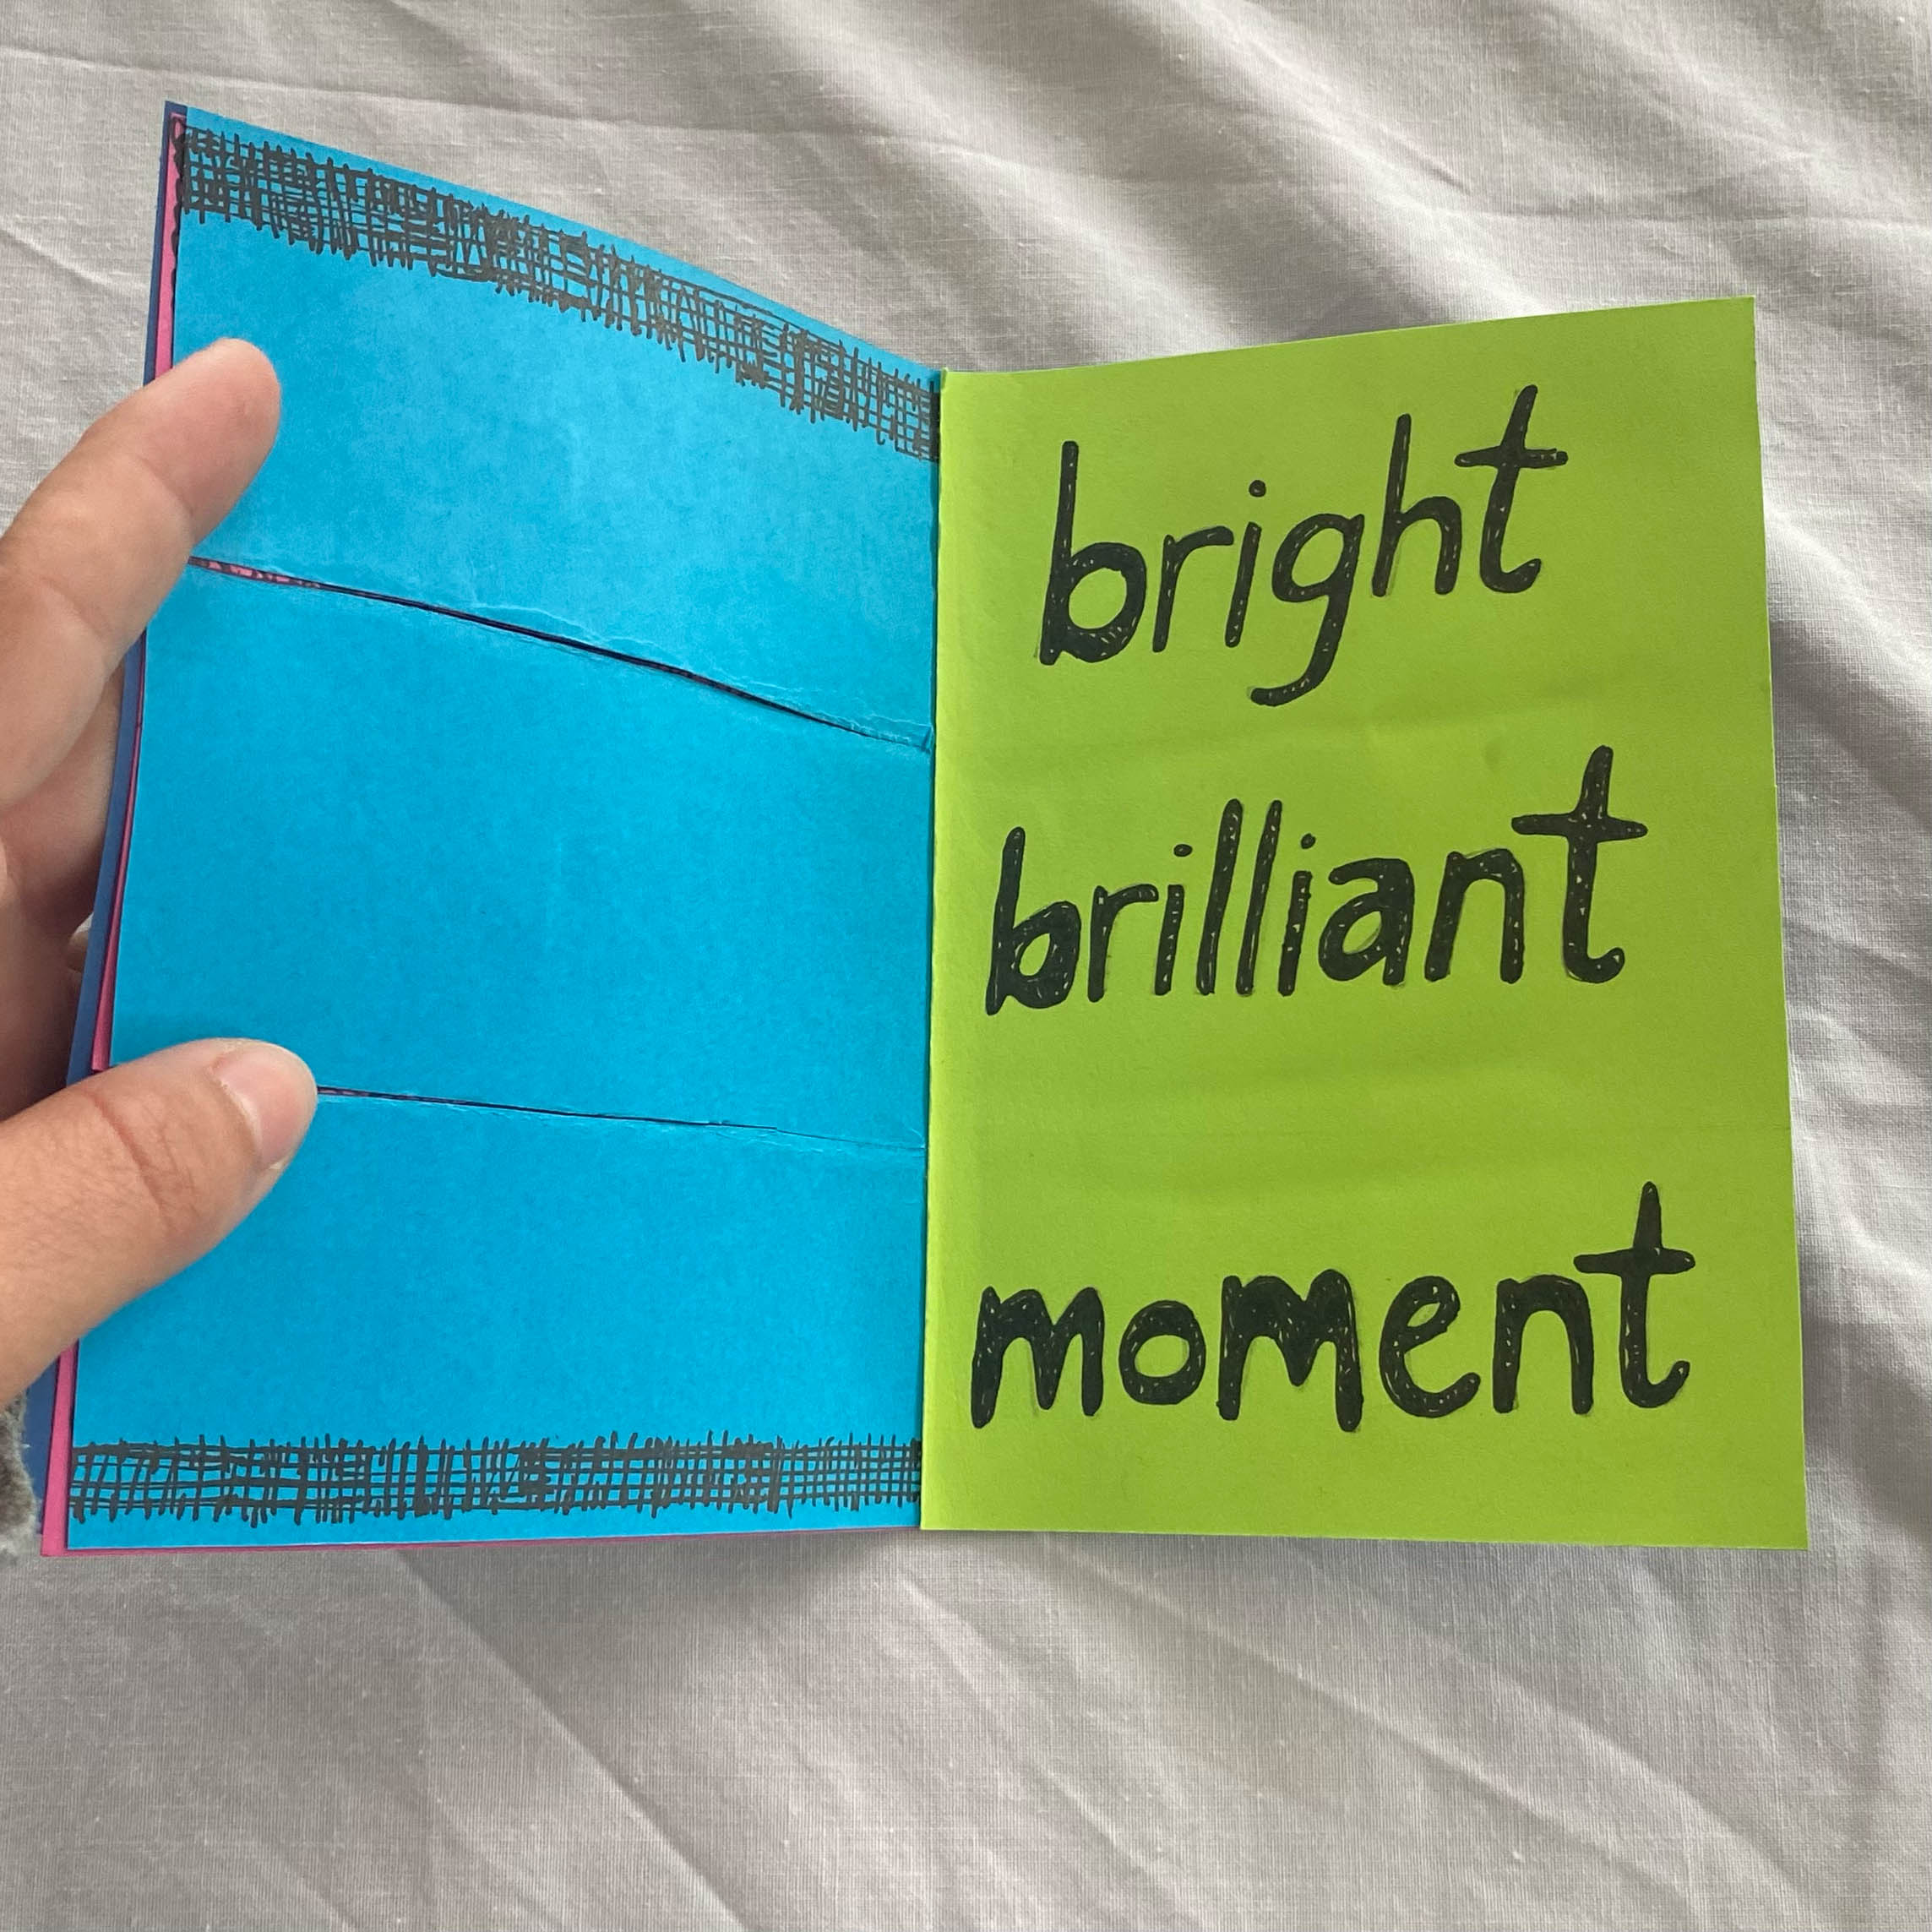 bright
brilliant
moment